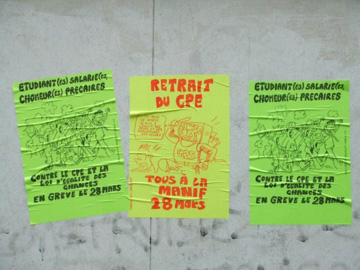 ETUDIANT(ES) SALARIE(ES,
CHOMEUR(ES) PRECAIRES
CONTRE LE CPE ET LA
LOI D'EGALITE DES
CHANCES
EN GREVE LE 28 MARS
RETRAIT
DU CPE
TOUS À LA
MANIF
28 MARS
ETUDIANT(ES) SALARIE(ES,
CHOMEUR(ES) PRECAIRES
CONTRE LE CPE ET LA
LOI D'EGALITE DES
CHANCES
EN GREVE LE 28 MARS